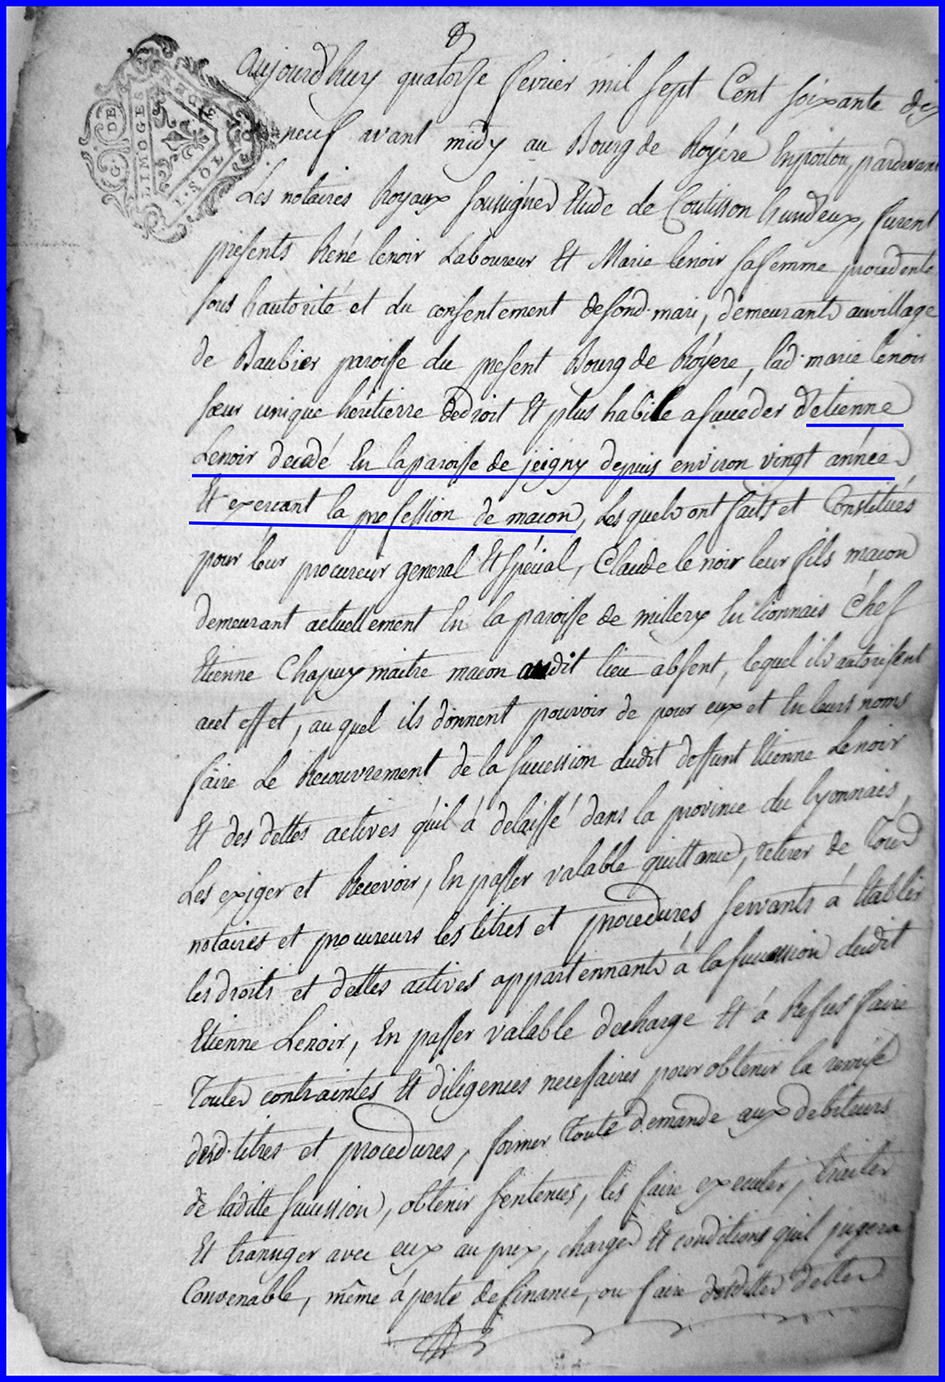 G. DE
LIMOGES
1. SOL
Aujourd'huy quatorse fevrier mil sept Cent soixante dix
neuf avant midy au Bourg de Royére En poitou, pardevant
Les notaires Royaux soussignés Etude de Coutisson l'und'eux, furent
presents René lenoir Laboureur Et Marie lenoir sa femme procedente
sous l'autorité et du consentement desond. mari, demeurants au village
de Baubier paroisse du present Bourg de Royére, lad. marie lenoir
sœur unique heritierre de droit Et plus habile a succeder d'etienne
Lenoir decedé En la paroisse de jeigny depuis environ vingt années
Et exercant la profession de macon, Lesquels ont faits et Constitués
pour leur procureur general Et special, Claude le noir leur fils macon
demeurant actuellement En la paroisse de millery En lionnais Chef
Etienne Chapuy maitre macon audit lieu absent, lequel ils autorisent
acet effet, au quel ils donnent pouvoir de pour eux et En leurs noms
faire Le Recouvrement de la succession dudit deffunt Etienne Lenoir
Et des dettes actives qu'il à delaissé dans la province du lyonnais,
Les exiger et Recevoir, En passer valable quittance, retirer de Tous
notaires et procureurs les titres et procedures servants à Etablir
les droits et dettes actives appartennants à la succession dudit
Etienne Lenoir, En passer valable decharge Et à Refus faire
Toutes contraintes Et diligences necessaires pour obtenir la remise
desd. titres et procedures, former Toute demande aux debiteurs
de laditte succession, obtenir sentences, les faire executer, traiter
Et transiger avec eux au prix, charges Et conditions quil jugera
Convenable, même à perte de finance, ou faire desdittes dettes